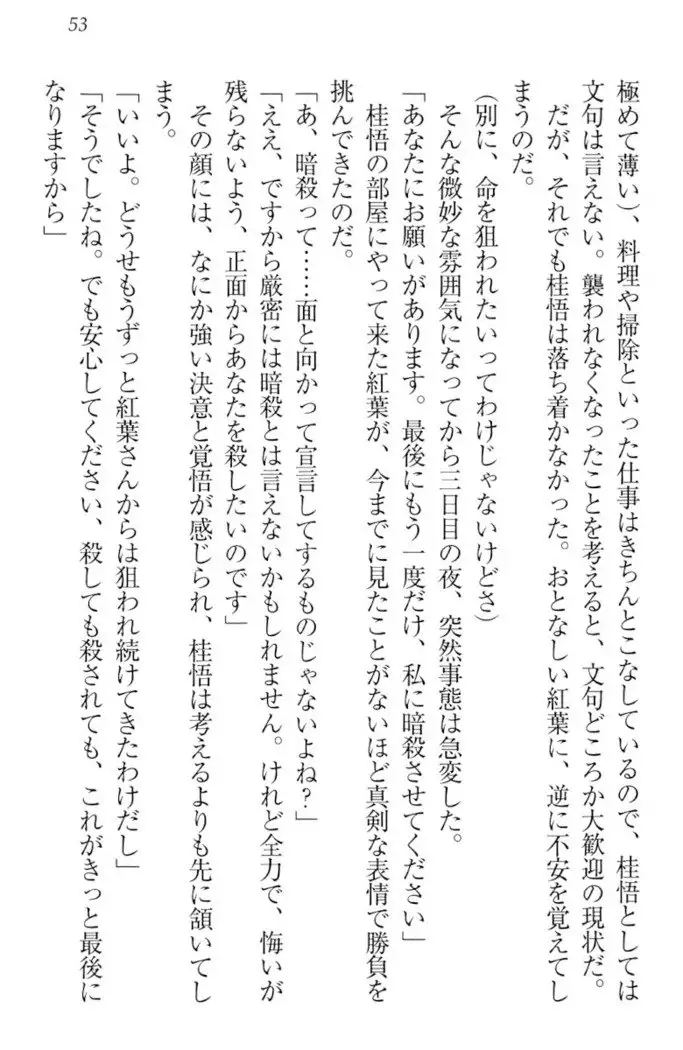 53
極めて薄い)、料理や掃除といった仕事はきちんとこなしているので、桂悟としては
文句は言えない。襲われなくなったことを考えると、文句どころか大歓迎の現状だ。
だが、それでも桂悟は落ち着かなかった。おとなしい紅葉に、逆に不安を覚えてし
まうのだ。
(別に、命を狙われたいってわけじゃないけどさ)
そんな微妙な雰囲気になってから三日目の夜、突然事態は急変した。
「あなたにお願いがあります。最後にもう一度だけ、私に暗殺させてください」
桂悟の部屋にやって来た紅葉が、今までに見たことがないほど真剣な表情で勝負を
挑んできたのだ。
「あ、暗殺って……面と向かって宣言してするものじゃないよね?」
「ええ、ですから厳密には暗殺とは言えないかもしれません。けれど全力で、悔いが
残らないよう、正面からあなたを殺したいのです」
その顔には、なにか強い決意と覚悟が感じられ、桂悟は考えるよりも先に頷いてし
まう。
「いいよ。どうせもうずっと紅葉さんからは狙われ続けてきたわけだし」
「そうでしたね。でも安心してください、殺しても殺されても、これがきっと最後に
なりますから」